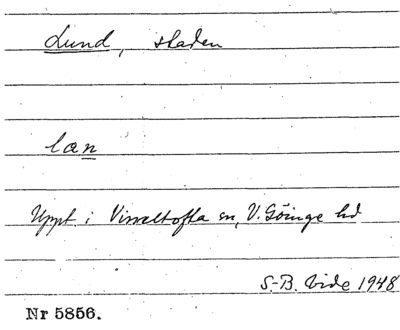 Lund, staden
lan
Uppt. i Visseltofta sn, V. Göinge hd
S-B. Vide 1948
Nr 5856.